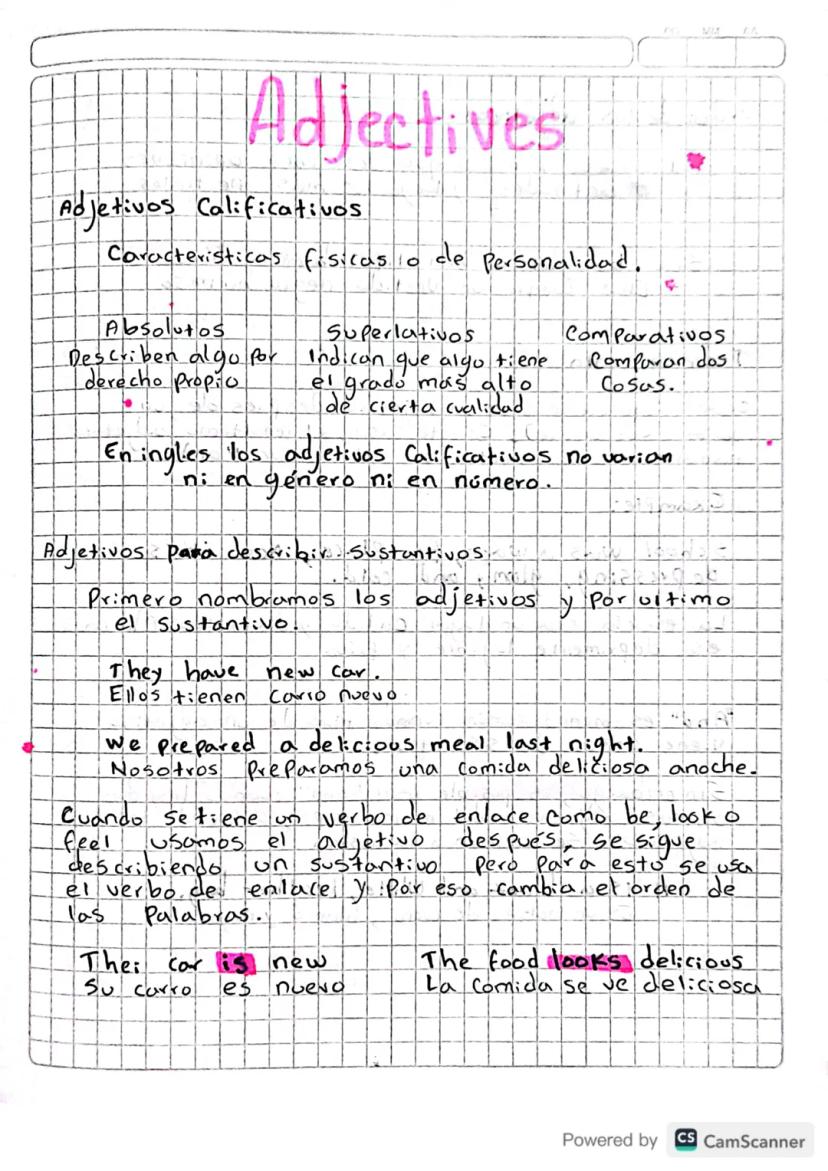 Adjectives
Adjetivos Calificativos
Caracteristicas fisicas o de Personalidad.
Absolutos
Describen algo por
derecho propio
Superlativos
Indican que algo tiene
el grado más alto
de cierta cualidad
Comparativos
Comparan dos
Cosas.
En ingles los adjetivos Calificativos no varian
ni en género ni en número.
Adjetivos para describir sustantivos
Primero nombramos los adjetivos y por ultimo
el sustantivo.
They have new car.
Ellos tienen carro nuevo
We prepared a delicious meal last night.
Nosotros preparamos una comida deliciosa anoche.
Cuando se tiene un verbo de enlace como be, look o
feel usamos el adjetivo después, se sigue
describiendo un sustantivo pero para esto se usa
el verbo de enlace y por eso cambia el orden de
las palabras.
Thei car is new
Su carro es nuevo
The food looks delicious
La comida se ve deliciosa
Powered by CS CamScanner